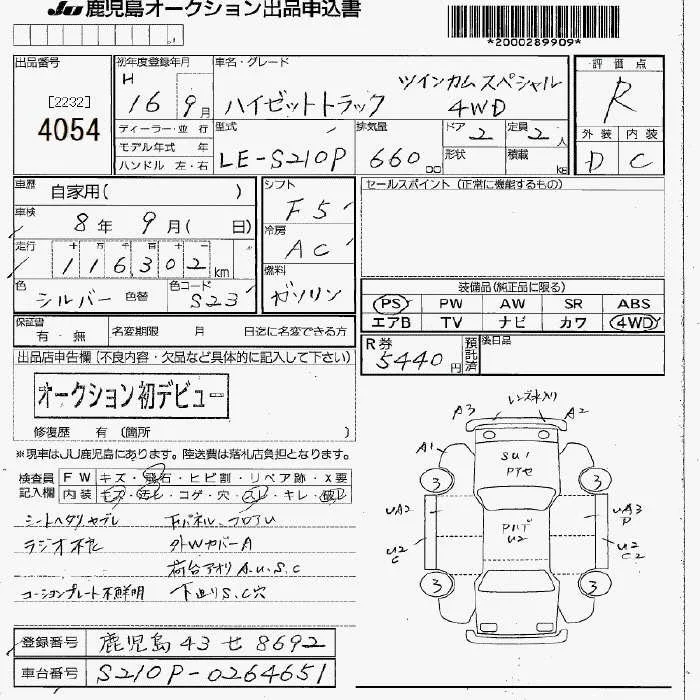 JU 鹿児島オークション出品申込書
*2000289909*
出品番号
[2232]
4054
初年度登録年月
H 16 9月
車名・グレード
ツインカム スペシャル
ハイゼットトラック 4WD
評価点
R
外装 内装
D C
ディーラー・並 行
モデル年式 年
ハンドル 左・右
型式
LE-S210P
排気量
660 cc
ドア 2
形状
定員 2人
積載 kg
車歴 自家用( )
車検 8年 9月( 日)
走行 十 万 千 百 十 一
116302 km
色 シルバー 色替
色コード S23
シフト F5
冷房 AC
燃料 ガソリン
セールスポイント (正常に機能するもの)
装備品(純正品に限る)
PS PW AW SR ABS
エアB TV ナビ カワ 4WD
保証書 有・無
名変期限 月 日迄に名変できる方
R券 5440円
預託済
後日品
出品店申告欄 (不良内容・欠品など具体的に記入して下さい)
オークション初デビュー
修復歴 有 (箇所 )
※現車はJU鹿児島にあります。陸送費は落札店負担となります。
検査員記入欄
FW キズ・飛石・ヒビ割・リペア跡・X要
内装 キズ・汚レ・コゲ・穴・スレ・キレ・破レ
シートヘタリ ヤブレ
ラジオ不化
コーションプレート不鮮明
下パネル、フロアU
外Wカバー A
荷台アオリ A.U.S.C
下回り S.C穴
レンズ水入り
A3 A2
SU1
A1
3 3
UA2
UA3
P
U2
U2
C
U2
C2
3 3
登録番号 鹿児島 43 せ 8692
車台番号 S210P-0264651